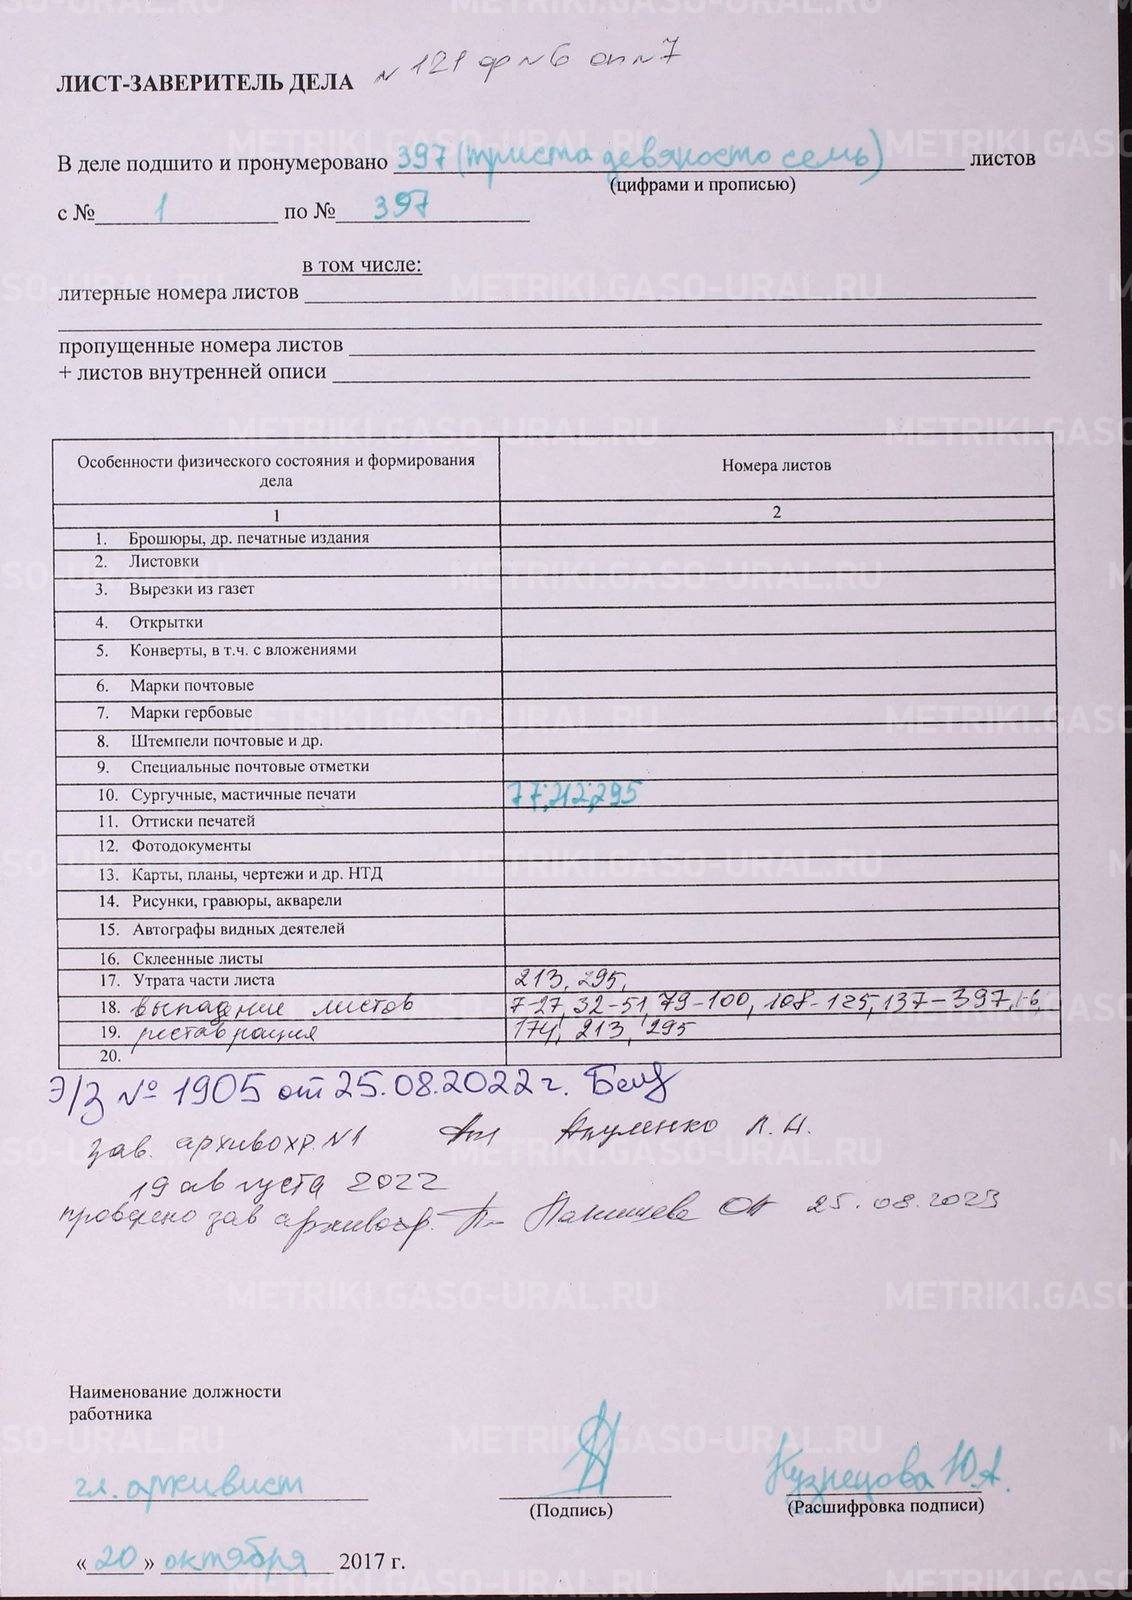 ЛИСТ-ЗАВЕРИТЕЛЬ ДЕЛА № 121 ф №6 оп №7
В деле подшито и пронумеровано 397 (триста девяносто семь) листов
(цифрами и прописью)
с № 1 по № 397
в том числе:
литерные номера листов
пропущенные номера листов
+ листов внутренней описи
Особенности физического состояния и формирования дела
Номера листов
1 2
1. Брошюры, др. печатные издания
2. Листовки
3. Вырезки из газет
4. Открытки
5. Конверты, в т.ч. с вложениями
6. Марки почтовые
7. Марки гербовые
8. Штемпели почтовые и др.
9. Специальные почтовые отметки
10. Сургучные, мастичные печати 77;212;295
11. Оттиски печатей
12. Фотодокументы
13. Карты, планы, чертежи и др. НТД
14. Рисунки, гравюры, акварели
15. Автографы видных деятелей
16. Склеенные листы
17. Утрата части листа 213, 295,
18. выпадение листов 7-27, 32-51, 79-100, 108-125, 137-397, 1-6,
19. реставрация 174, 213, 295
20.
Э/З № 1905 от 25.08.2022 г.
зав. архивохр. №1 Акуленко Л.Н.
19 августа 2022
проверено зав архивохр. 25.08.2023
Наименование должности
работника
гл. архивист
(Подпись)
Кузнецова Ю.А.
(Расшифровка подписи)
«20» октября 2017 г.
METRIKI.GASO-URAL.RU